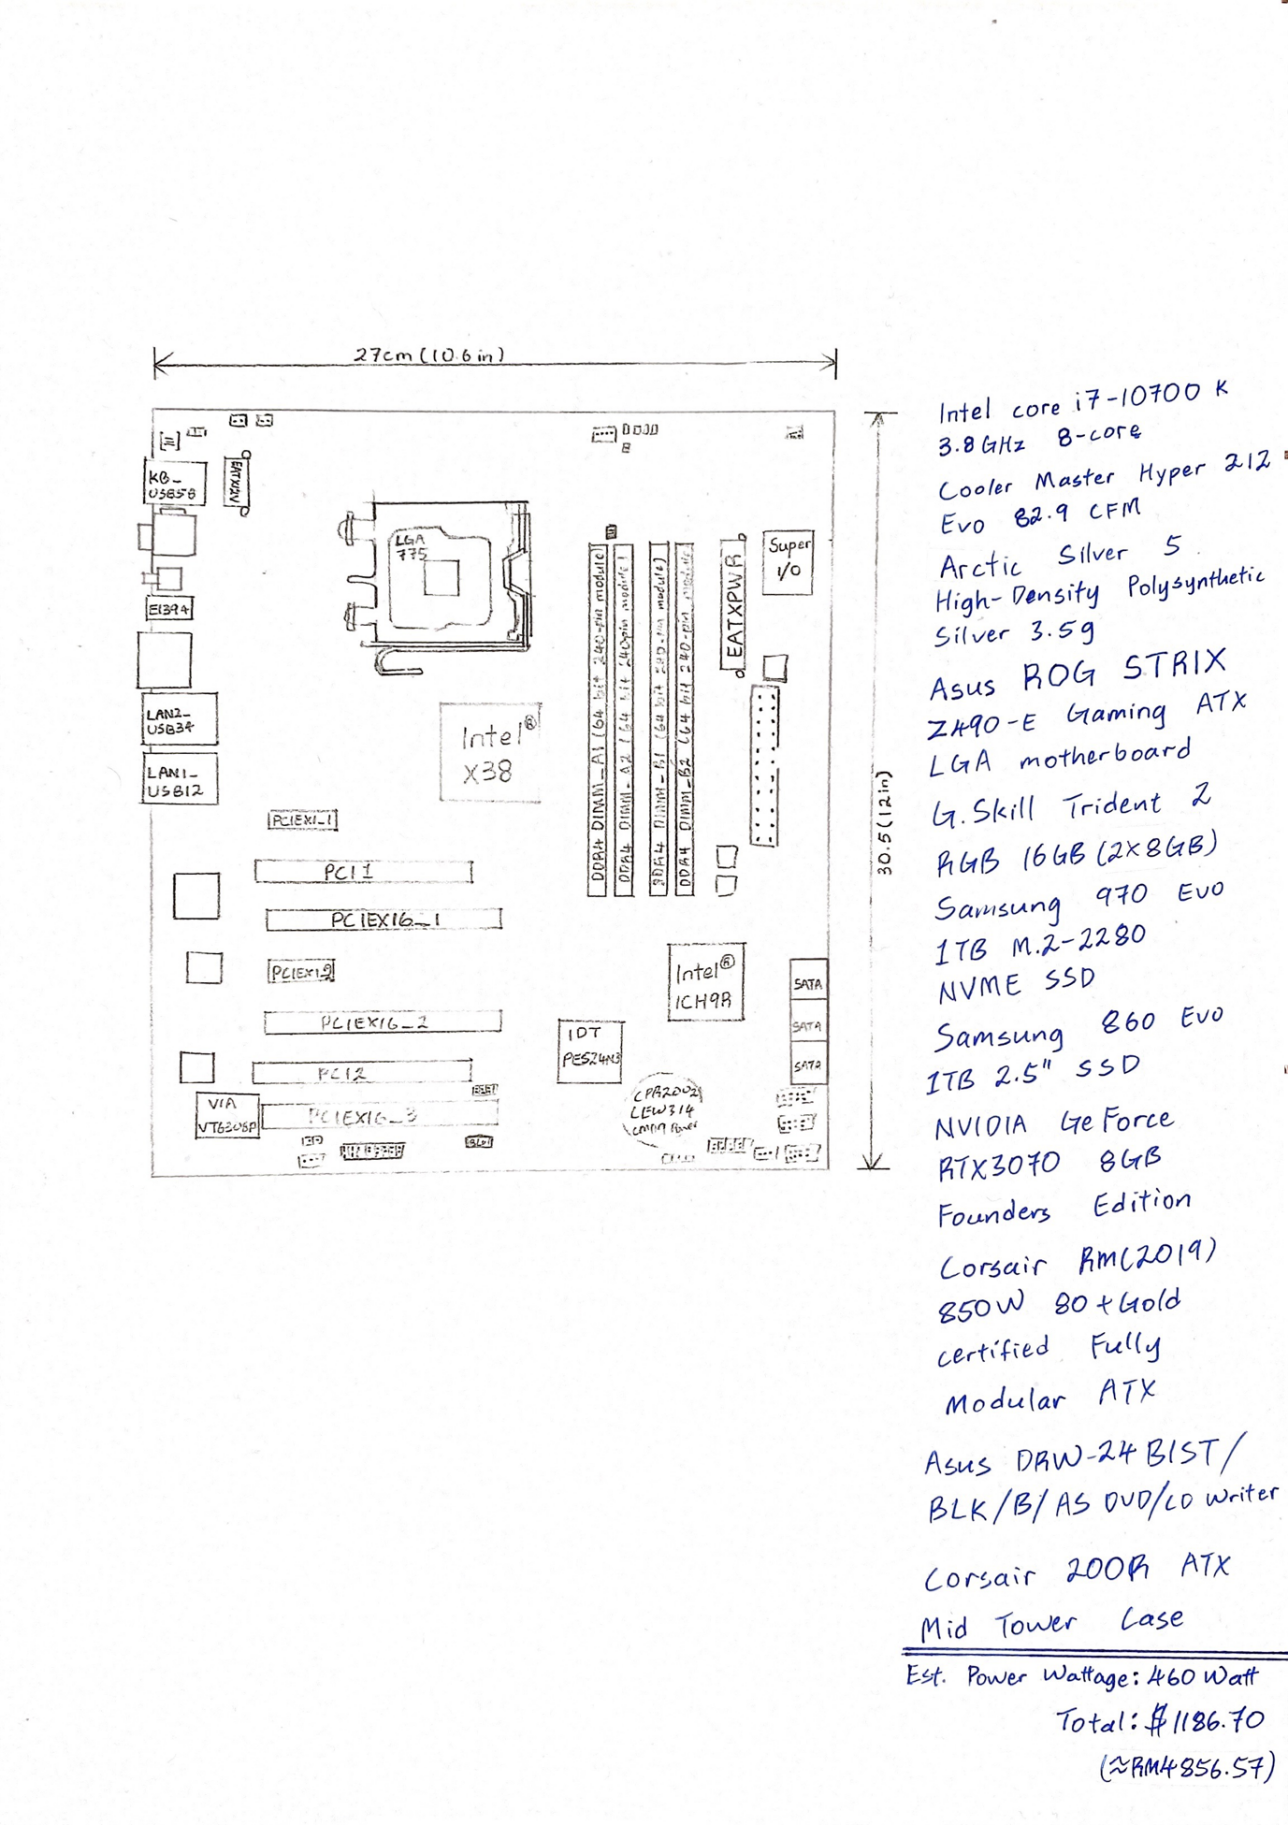 27cm (10.6 in)
KB_
USB56
EATX12V
LGA
775
E1394
LAN2_
USB34
LAN1_
USB12
Intel®
X38
DDR4 DIMM_A1 (64 bit 240-pin module)
DDR4 DIMM_A2 (64 bit 240pin module)
DDR4 DIMM_B1 (64 bit 240-pin module)
DDR4 DIMM_B2 (64 bit 240-pin module)
EATXPWR
Super
I/O
30.5 (12in)
PCIEX1_1
PCI1
PCIEX16_1
PCIEX1_2
PCIEX16_2
PCI2
PCIEX16_3
VIA
VT6308P
Intel®
ICH9R
IDT
PES24N3
SATA
SATA
SATA
CPR2002
LEW314
CMOS Power
Intel core i7-10700 K
3.8GHz 8-core
Cooler Master Hyper 212
Evo 82.9 CFM
Arctic Silver 5
High-Density Polysynthetic
Silver 3.5g
Asus ROG STRIX
Z490-E Gaming ATX
LGA motherboard
G.Skill Trident Z
RGB 16GB (2X8GB)
Samsung 970 Evo
1TB M.2-2280
NVME SSD
Samsung 860 Evo
1TB 2.5" SSD
NVIDIA GeForce
RTX3070 8GB
Founders Edition
Corsair RM(2019)
850W 80+Gold
certified Fully
Modular ATX
Asus DRW-24B1ST/
BLK/B/AS DVD/CD Writer
Corsair 200R ATX
Mid Tower Case
Est. Power Wattage: 460 Watt
Total: $1186.70
(≈RM4856.57)